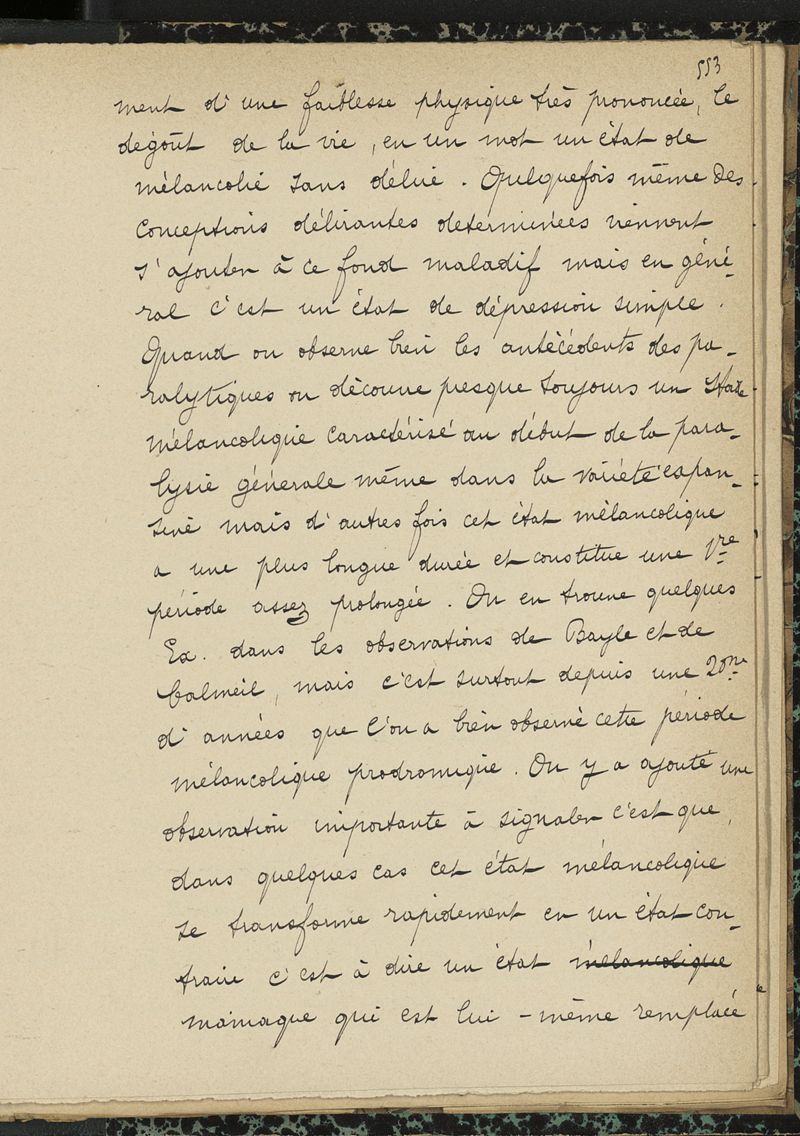 553
ment d'une faiblesse physique très prononcée, le
degoût de la vie, en un mot un état de
mélancolie sans délire. Quelquefois même des
conceptions délirantes determinées viennent
s'ajouter à ce fond maladif mais en géné-
ral c'est un état de dépression simple.
Quand on observe bien les antécédents des pa-
ralytiques on découvre presque toujours un stade
mélancolique caractérisé au début de la para-
lysie générale même dans la variété expan-
sive mais d'autres fois cet état mélancolique
a une plus longue durée et constitue une 1re
période assez prolongée. On en trouve quelques
Ex. dans les observations de Bayle et de
Calmeil, mais c'est surtout depuis une 20ne
d'années que l'on a bien observé cette période
mélancolique prodromique. On y a ajouté une
observation importante à signaler c'est que,
dans quelques cas cet état mélancolique
se transforme rapidement en un état con-
traire c'est à dire un état mélancolique
maniaque qui est lui-même remplacé